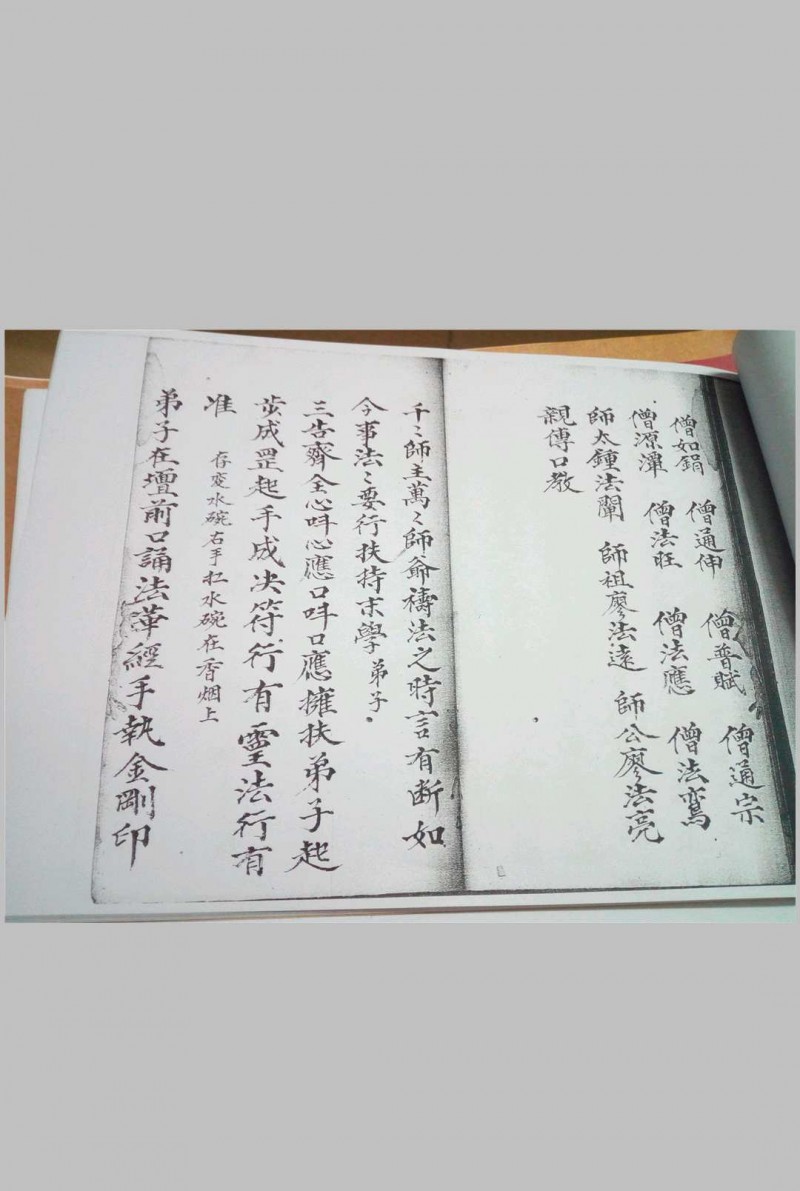 僧如鋗 僧通伸 僧普賦 僧通宗
僧源潬 僧法旺 僧法應 僧法鸞
師太鍾法闡 師祖廖法遠 師公廖法亮
親傳口教
千〻師主萬〻師爺禱法之時言有断如
今事法〻要行扶持末學弟子
三告齊全心呌心應口呌口應擁扶弟子起
成罡起手成决符行有靈法行有
准 存变水碗右手扛水碗在香烟上
弟子在壇前口誦法華經手執金剛印